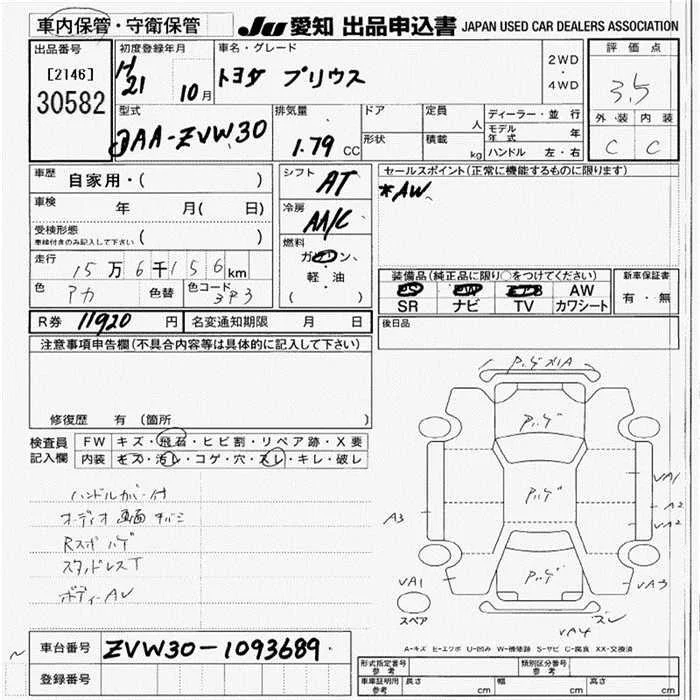 車内保管・守衛保管 JU 愛知 出品申込書 JAPAN USED CAR DEALERS ASSOCIATION
出品番号 初度登録年月 車名・グレード 評価点
[2146] H21 10月 トヨタ プリウス 2WD・4WD 3.5
30582 型式 排気量 ドア 定員 人 ディーラー・並行 外装 内装
DAA-ZVW30 1.79 CC 形状 積載 kg モデル年式 年 C C
ハンドル 左・右
車歴 自家用・( ) シフト AT セールスポイント(正常に機能するものに限ります)
車検 年 月( 日) 冷房 AA/C *AW
受検形態 ( )
車検付きのみ記入して下さい
燃料 ガソリン、軽・油 ( )
走行 15万6千156km 装備品(純正品に限り○をつけてください) 新車保証書
色 アカ 色替 色コード 3P3 PS PW エアB AW 有・無
SR ナビ TV カワシート
R券 11920円 名変通知期限 月 日 後日品
注意事項申告欄(不具合内容等は具体的に記入して下さい)
修復歴 有 (箇所
検査員記入欄 FW キズ・飛石・ヒビ割・リペア跡・X要
内装 キズ・汚レ・コゲ・穴・スレ・キレ・破レ
ハンドルカバー付
オーディオ画面キバミ
Rスポハゲ
スタッドレスT
ボディーAU
ハゲ
ハゲ
ハゲ
A3
VA1
A2
VA2
VA1
VA3
スレ
VA4
スペア
A-キズ E-エクボ U-凹み W-補修跡 S-サビ C-腐食 XX-交換済
車台番号 ZVW30-1093689
登録番号
形式指定番号 参考 類別区分番号 参考
車庫証明用 参考 長さ cm 幅 cm 高さ cm